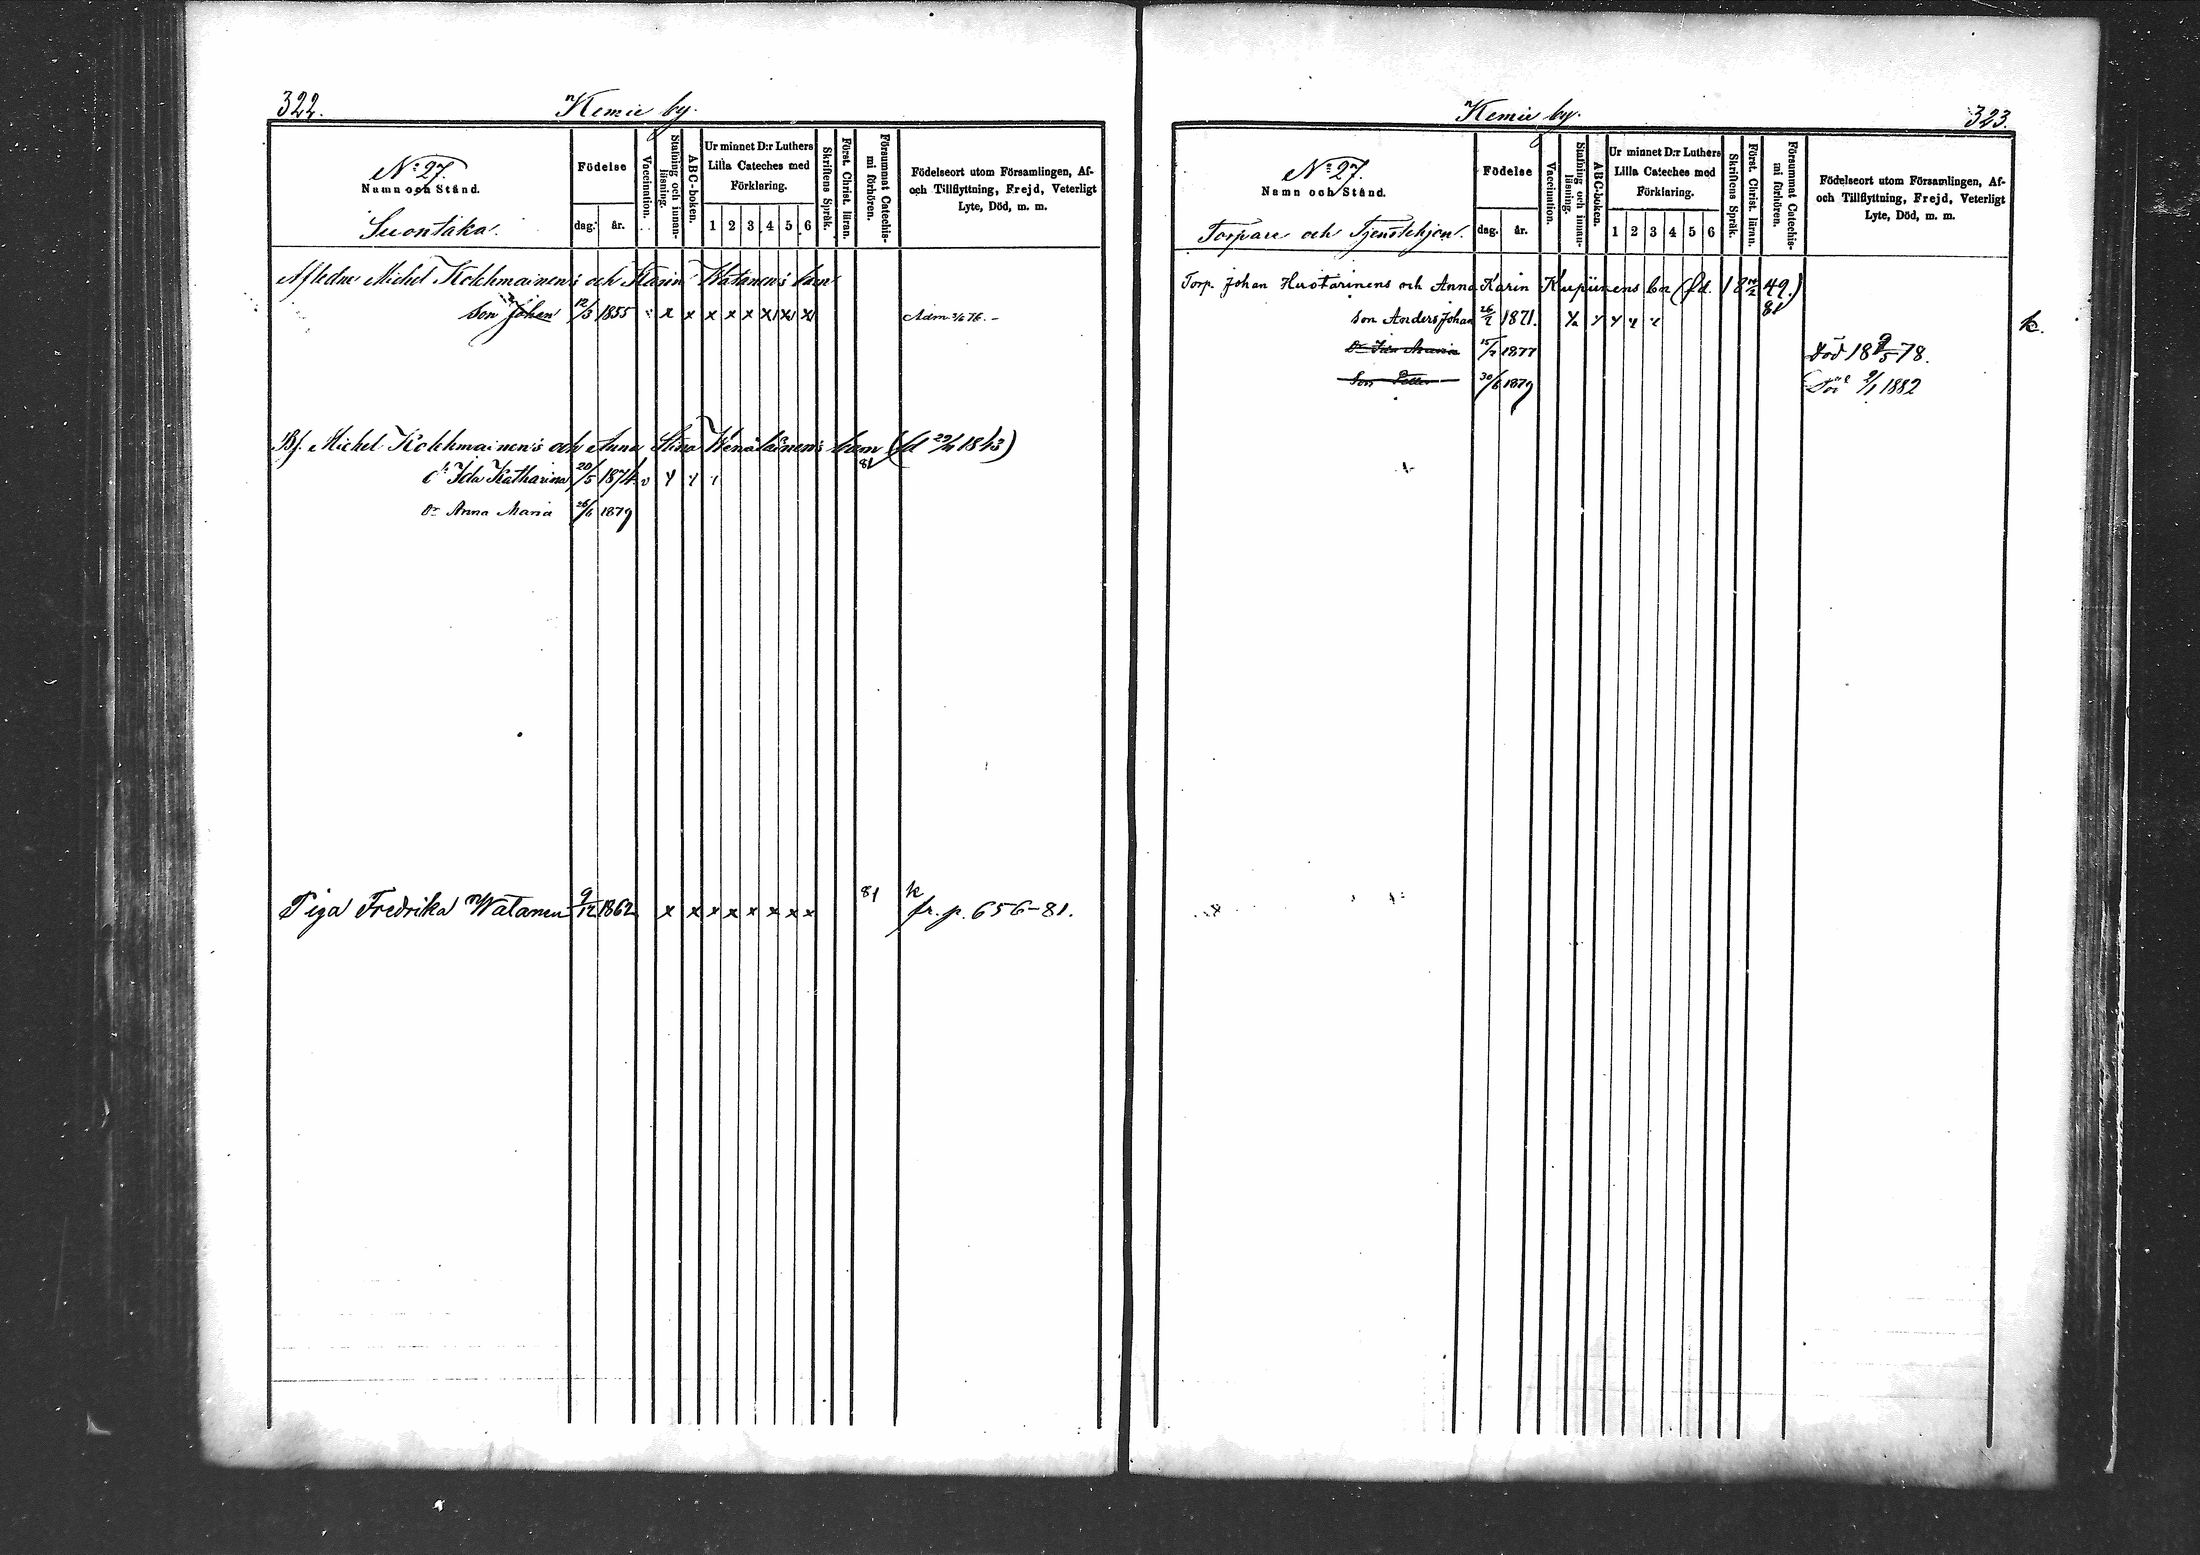 322. Kemie by.
N:o 27.
Namn och Stånd.
Suontaka.
Födelse
dag. år.
Vaccination.
Stafning och innan-läsning.
ABC-boken.
Ur minnet D:r Luthers
Lilla Cateches med
Förklaring.
1 2 3 4 5 6
Skriftens Språk.
Först. Christ. läran.
Försummat Catechis-mi förhören.
Födelseort utom Församlingen, Af-
och Tillflyttning, Frejd, Veterligt
Lyte, Död, m. m.
Afledne Michel Kokkmainen's och Karin Watanen's barn
Son Johan 12/3 1855 x x x x x x x x Adm 76. –
Bf. Michel Kokkmainen's och Anna Stina Wenäläinen's barn (fd 1843)
81
Ida Katharina 20/5 1874 v
Dr Anna Maria 26/6 1879
81 k
Piga Fredrika Watanen 9/12 1862 x x x x x x x x fr. p. 656–81.
Kemie by. 323.
N:o 27.
Namn och Stånd.
Torpare och Tjenstehjon.
Födelse
dag. år.
Vaccination.
Stafning och innan-läsning.
ABC-boken.
Ur minnet D:r Luthers
Lilla Cateches med
Förklaring.
1 2 3 4 5 6
Skriftens Språk.
Först. Christ. läran.
Försummat Catechis-mi förhören.
Födelseort utom Församlingen, Af-
och Tillflyttning, Frejd, Veterligt
Lyte, Död, m. m.
Torp. Johan Hustarinens och Anna Karin Kupiinens bn (fd. 18 49.)
81
Son Anders Johan 26/2 1871. k.
Dr Ida Maria 15/7 1877 Död 18 9/5 78.
Son Petter 30/6 1879 9/1 1882